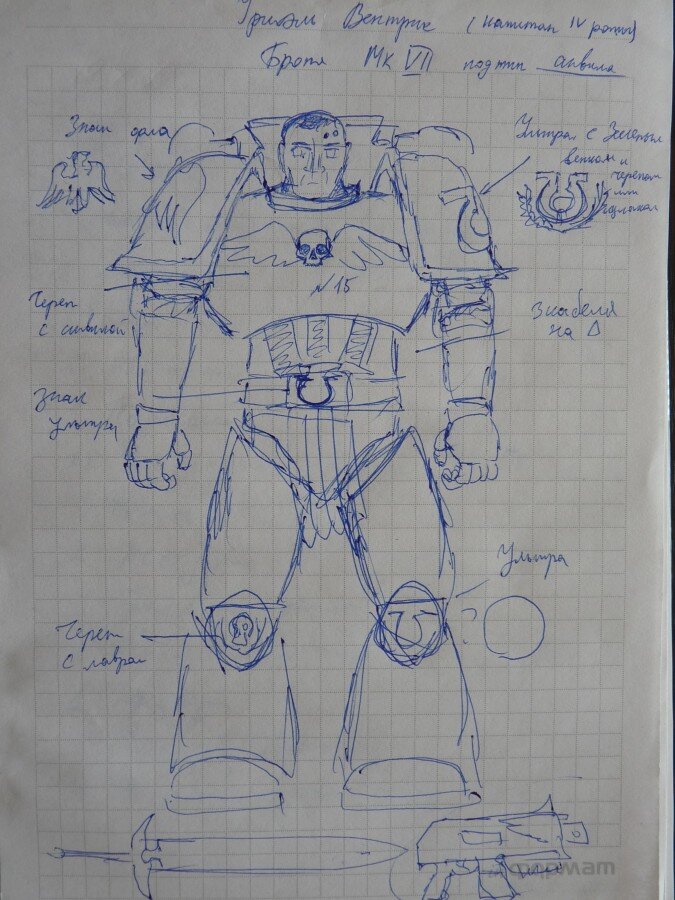 Уриэль Вентрис (капитан IV роты)
Броня Mk VII подтип аквила
Знак орла
Ультра с Зелёным
венком и
черепом
или
Череп
с аквилой
№15
на
Знак
Ультра
Ультра
?
Череп
с лавром
формат